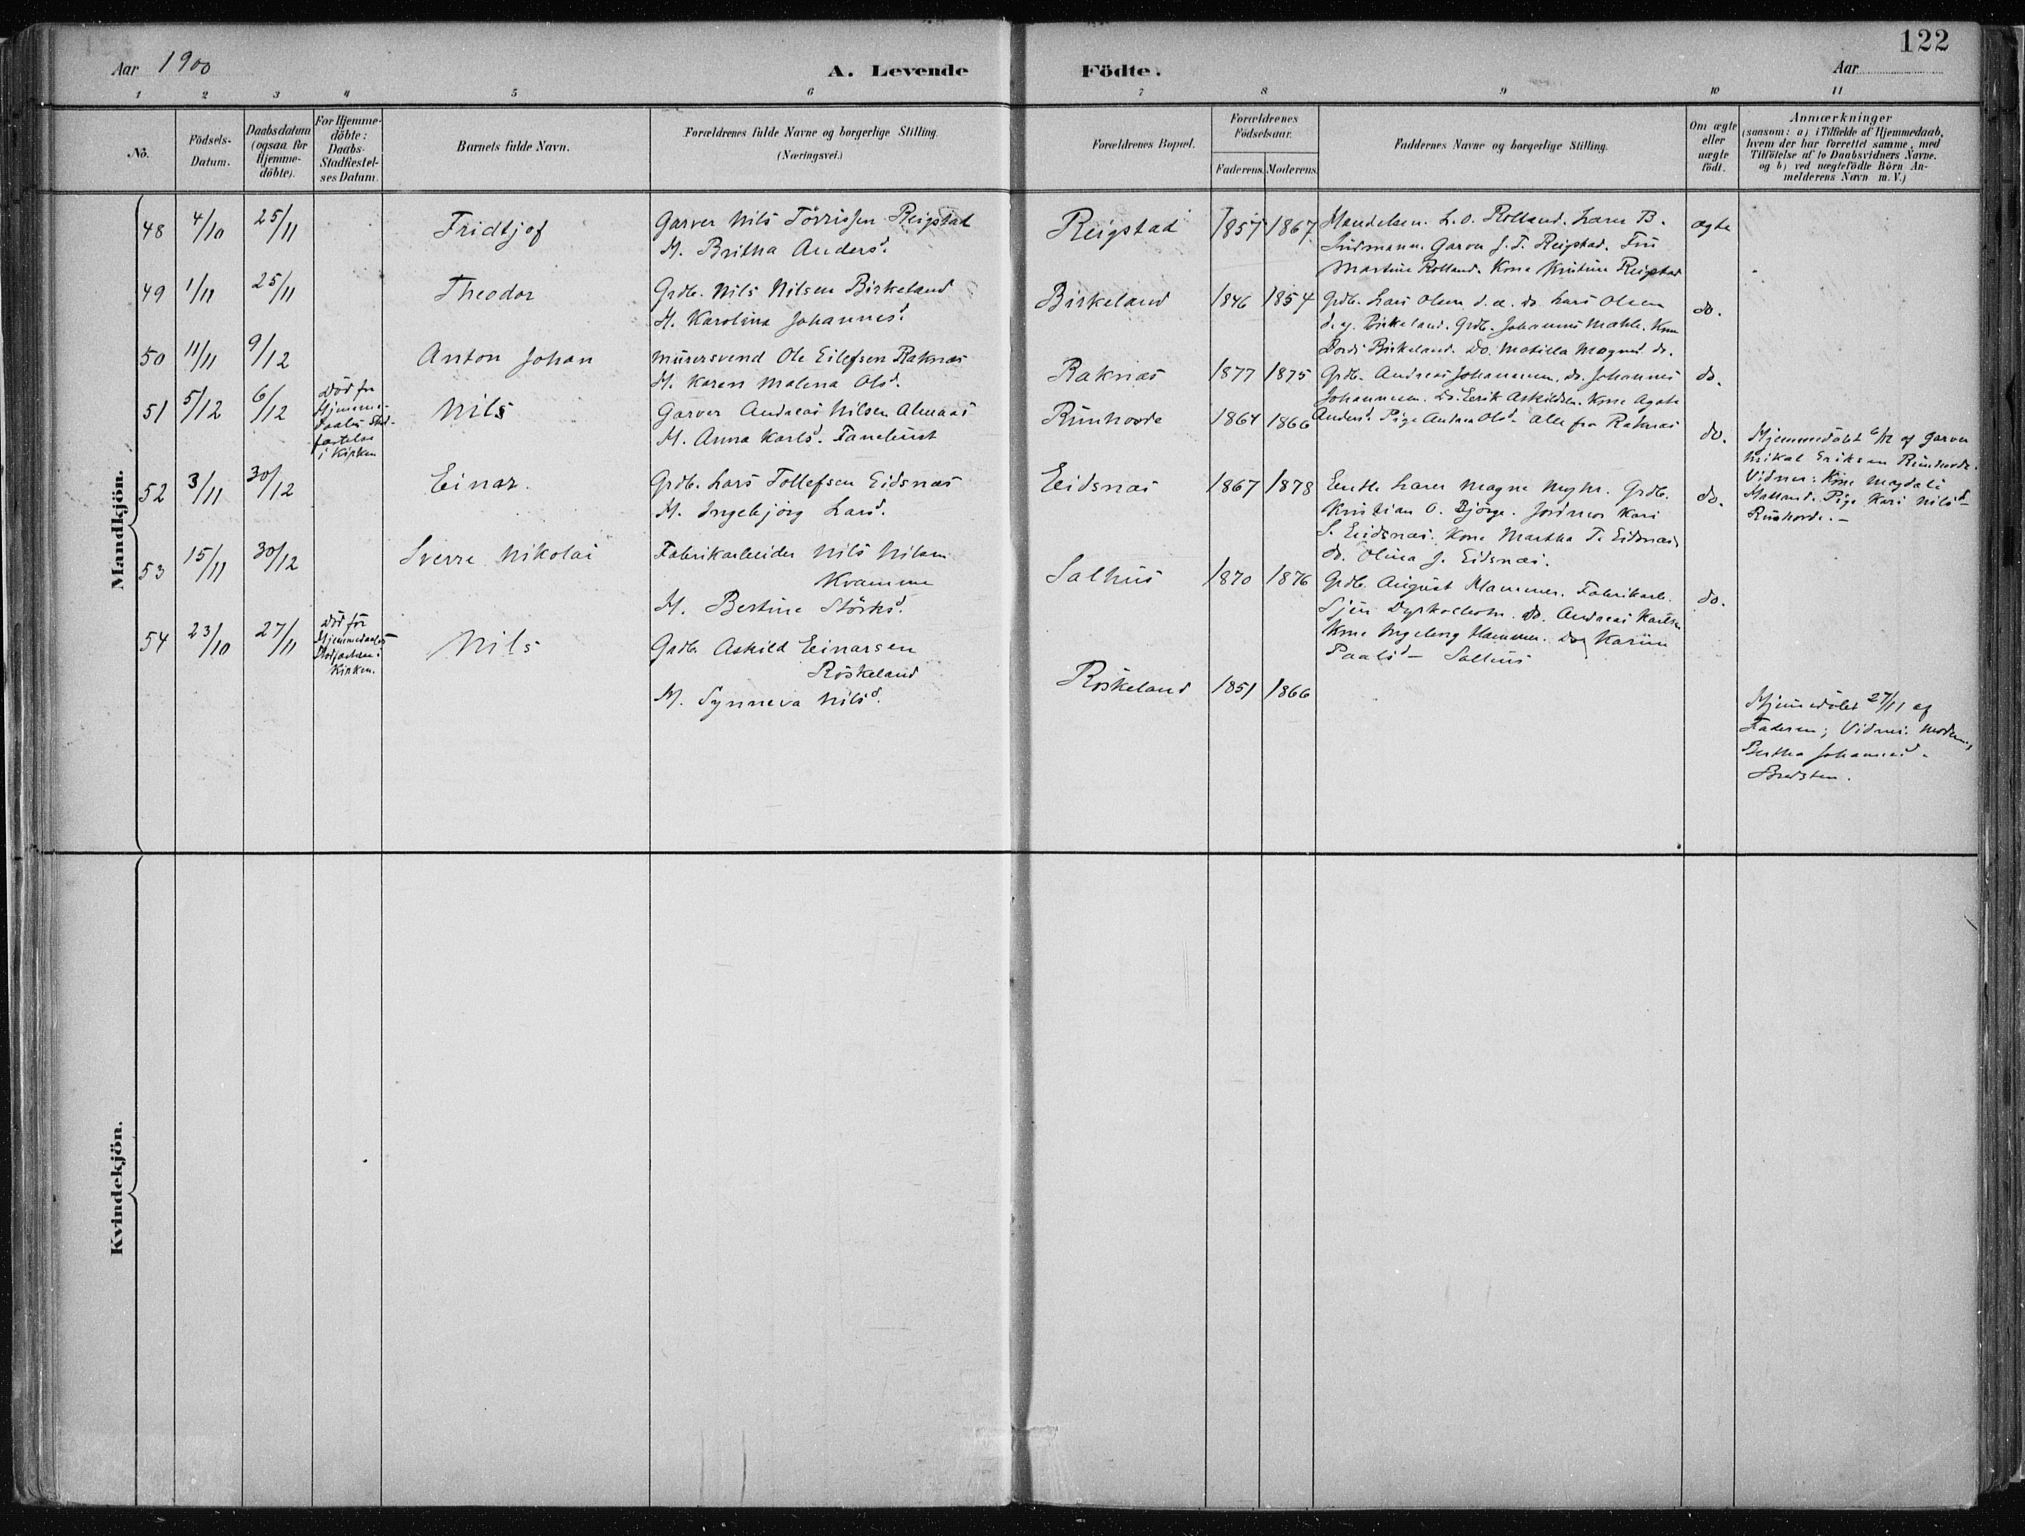 122
Aar 1900
A. Levende Födte.
Aar
1 2 3 4 5 6 7 8 9 10 11
No.
Födsels-Datum.
Daabsdatum (ogsaa for Hjemme-döbte).
For Hjemme-döbte: Daabs-Stadfæstel-ses Datum.
Barnets fulde Navn.
Forældrenes fulde Navne og borgerlige Stilling.
(Næringsvei.)
Forældrenes Bopæl.
Forældrenes Födselsaar.
Faderens. Moderens.
Faddernes Navne og borgerlige Stilling.
Om ægte eller uægte födt.
Anmærkninger
(saasom: a) i Tilfælde af Hjemmedaab,
hvem der har forrettet samme, med
Tilföielse af to Daabsvidners Navne.
og b) ved uægtefödte Börn An-
melderens Navn m. V.)
Mandkjön.
48 4/10 25/11 Fridtjof
Garver Nils Törrissen Reigstad
H. Britha Anders d.
Reigstad 1857 1867
Handelsm. L. O. Rolland. Lærer B.
Garver J. T. Reigstad. Fru
Martine Rolland. Kone Kristine Reigstad
ægte
49 1/11 25/11 Theodor
Grdb. Nils Nilsen Birkeland
H. Karolina Johannes d.
Birkeland 1846 1854
Grdb. Lars Olsen d. æ. do. Lars Olsen
d. y. Birkeland. Grdb. Johannes Mæhle. Kone
Dordi Birkeland. Do. Matilla Magnus d.
do.
50 11/11 9/12 Anton Johan
Murersvend Ole Eilefsen Raknæs
H. Karen Malena Ols d.
Raknæs 1877 1875
Grdb. Andreas Johannesen, do. Johannes
Johannesen. Do. Eerik Askildsen. Kone Agate
Anders d. Pige Andrea Ols d. alle fra Raknæs
do.
51 5/12 6/12
Död før
Hjemme-
daabs Stad-
fæstelse
i Kirken
Nils
Garver Andreas Nilsen Almaas
H. Anna Karls d. Tanehust
Rimhovde 1864 1866
do.
Hjemmedöbt 6/12 af Garver
Mikal Eriksen Rimhovde.
Vidner: Kone Magdali
Hatland. Pige Kari Nils d.
Rimhovde.-
52 3/11 30/12 Einar.
Grdb. Lars Tollefsen Eidsnæs
H. Ingebjörg Lars d.
Eidsnæs 1867 1878
Lærer Magne Myhr. Grdb.
Kristian O. Björge. Jordmor Kari
S. Eidsnæs. Kone Martha T. Eidsnæs
do. Olina J. Eidsnæs.
do.
53 15/11 30/12 Sverre Nikolai
Fabrikarbeider Nils Nilsen
Kvamme
H. Bertine Störks d.
Salhus 1870 1876
Grdb. August Hammer. Fabrikarb.
Dyrkolbotn. Do. Andreas Karlsen
Kone Ingeborg Hammer. Do. Karine
Paals d. Salhus
do.
54 23/10 27/11
Död før
Hjemmedaabs
Kirken.
Nils
Grdb. Askild Einarsen
Röskeland
H. Synneva Nils d.
Röskeland 1851 1866
Hjemmedöbt 27/11 af
Faderen; Vidner: Moderen,
Bertha Johannes d.
Kvindekjön.